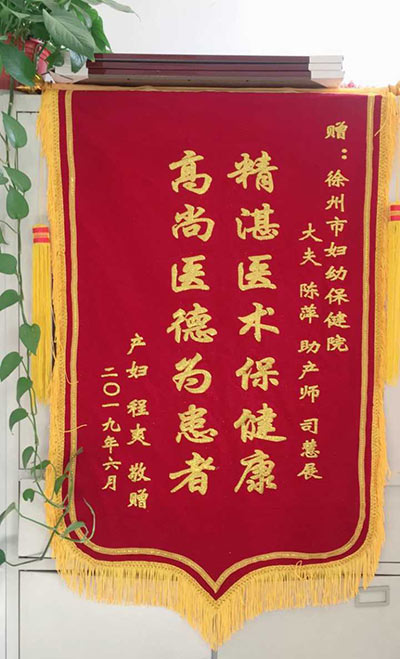 赠：徐州市妇幼保健院
大夫 陈萍 助产师 司慧展
精湛医术保健康
高尚医德为患者
产妇 程爽 敬赠
二〇一九年六月